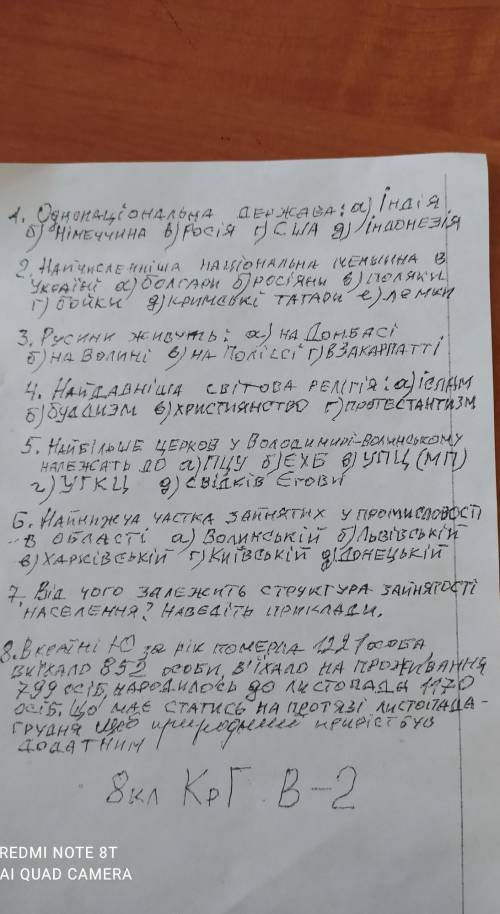 1. Однонаціональна держава: а) Індія
б) Німеччина в) Росія г) США д) Індонезія
2. Найчисленніша національна меншина в
Україні а) болгари б) росіяни в) поляки
г) бойки д) кримські татари е) лемки
3. Русини живуть: а) на Донбасі
б) на Волині в) на Поліссі г) в Закарпатті
4. Найдавніша світова релігія: а) іслам
б) буддизм в) християнство г) протестантизм
5. Найбільше церков у Володимирі-Волинському
належать до а) ПЦУ б) ЄХБ в) УПЦ (МП)
г) УГКЦ д) свідків Єгови
6. Найнижча частка зайнятих у промисловості
в області а) Волинській б) Львівській
в) Харківській г) Київській д) Донецькій
7. Від чого залежить структура зайнятості
населення? Наведіть приклади.
8. В країні Ю за рік померла 1221 особа,
виїхало 852 особи, в'їхало на проживання
799 осіб, народилось до листопада 1170
осіб. Що має статись на протязі листопада-
грудня щоб природний приріст був
додатним
8 кл КрГ В-2
REDMI NOTE 8T
AI QUAD CAMERA